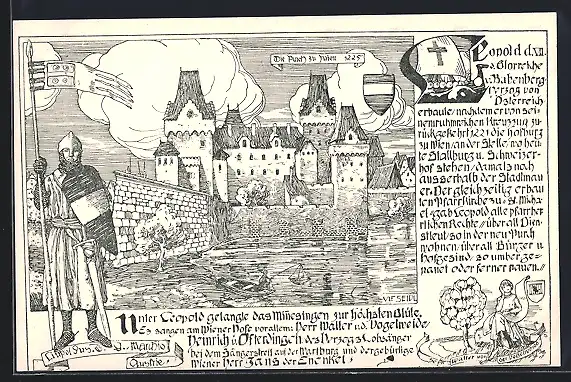 Die Purch zu Wien 1225
Leopold d.VII.
d. Glorreiche
v. Babenberg
Herzog von
Österreich
erbaute, nachdem er von sei-
nem ruhmreichen Kreuzzug zu-
rückgekehrt 1221 die Hofburg
zu Wien, an der Stelle, wo heu-
te Stallburg u. Schweizer-
hof stehen, damals noch
ausserhalb der Stadtmau-
er. Der gleichzeitig erbau-
ten Pfarrkirche zu St. Micha-
el gab Leopold alle pfarrherr-
lichen Rechte "über all Dien-
stleut, so in der neu Purch
wohnen, über all Bürger u.
Hofgesind, so umher ge-
pauet oder ferner pauen."
Unter Leopold gelangte das Minesingen zur höchsten Blüte.
Es sangen am Wiener Hofe vor allem: Herr Walter v.d. Vogelweide,
Heinrich v. Ofterdingen, des Herzogs Lobsänger
bei dem Sängerstreit auf der Wartburg und der gebürtige
Wiener Herr Jans der Enenkel.
Marchio
Austriae
Walter von der Vogelweide